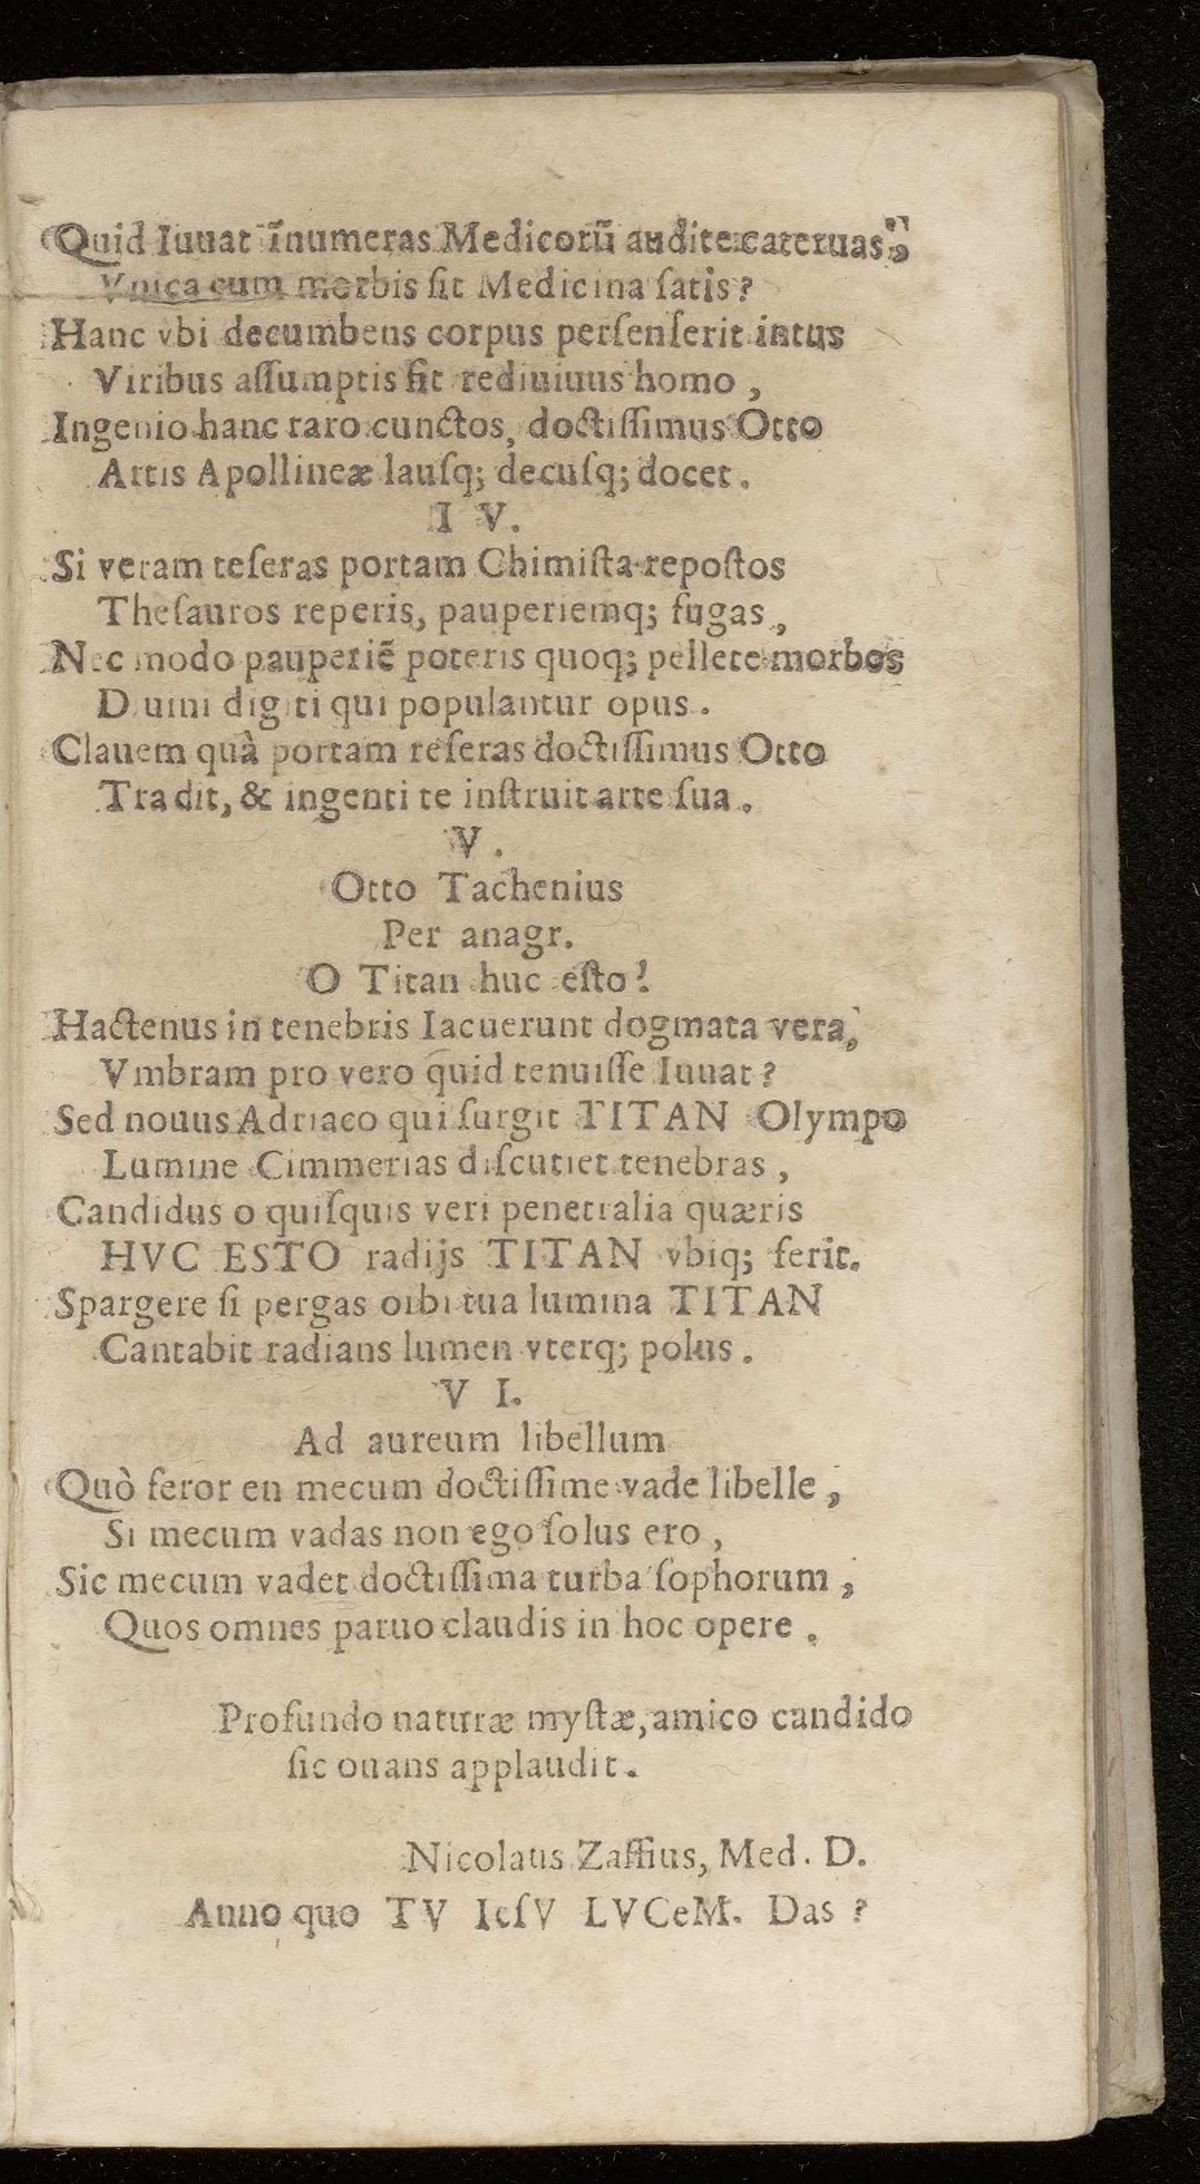 Quid Iuuat ĩnumeras Medicorũ audire cateruas,
Vnica cum morbis sit Medicina satis?
Hanc vbi decumbens corpus persenserit intus
Viribus assumptis fit rediuiuus homo,
Ingenio hanc raro cunctos, doctissimus Otto
Artis Apollineæ lausq; decusq; docet.
I V.
Si veram reseras portam Chimista repostos
Thesauros reperis, pauperiemq; fugas,
Nec modo pauperiẽ poteris quoq; pellere morbos
Diuini digiti qui populantur opus.
Clauem quà portam reseras doctissimus Otto
Tradit, & ingenti te instruit arte sua.
V.
Otto Tachenius
Per anagr.
O Titan huc esto!
Hactenus in tenebris Iacuerunt dogmata vera,
Vmbram pro vero quid tenuisse Iuuat?
Sed nouus Adriaco qui surgit TITAN Olympo
Lumine Cimmerias discutiet tenebras,
Candidus o quisquis veri penetralia quæris
HVC ESTO radijs TITAN vbiq; ferit.
Spargere si pergas orbi tua lumina TITAN
Cantabit radians lumen vterq; polus.
V I.
Ad aureum libellum
Quò feror en mecum doctissime vade libelle,
Si mecum vadas non ego solus ero,
Sic mecum vadet doctissima turba sophorum,
Quos omnes paruo claudis in hoc opere.
Profundo naturæ mystæ, amico candido
sic ouans applaudit.
Nicolaus Zassius, Med. D.
Anno quo TV IesV LVCeM. Das?